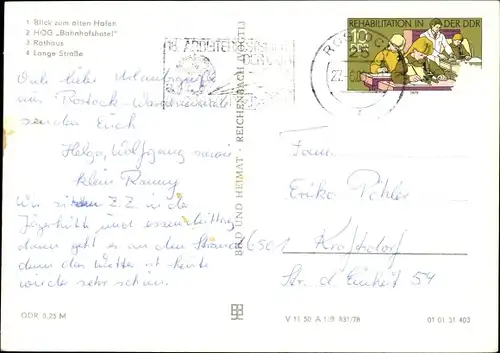 1 Blick zum alten Hafen
2 HOG „Bahnhofshotel"
3 Rathaus
4 Lange Straße
REHABILITATION IN DER DDR
10
DDR
liebe Urlaubsgrüße
aus Rostock-
senden Euch
Helga, Wolfgang sowie
klein Ronny
Wir sitzen z. Z. in der
Jägerhütte und essen Mittag
dann geht es an den Strand
denn das Wetter ist heute
wieder sehr schön.
BILD UND HEIMAT · REICHENBACH (VOGTL)
Fam.
Erika
6501
Str. d. Einheit 54
DDR 0,25 M
V 11 50 A 1/B 831/78
01 01 31 403